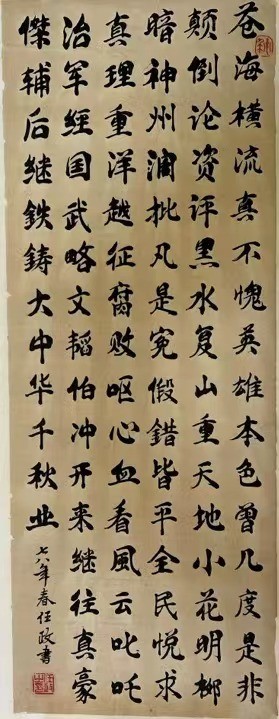 苍海横流真不愧英雄本色曾几度是非
颠倒论资评黑水复山重天地小花明柳
暗神州澜批凡是冤假錯皆平全民悦求
真理重洋越征腐败呕心血看風云叱吒
治军經国武略文韬伯冲开来继往真豪
傑辅后继鉄鋳大中华千秋业
七八年春任政書